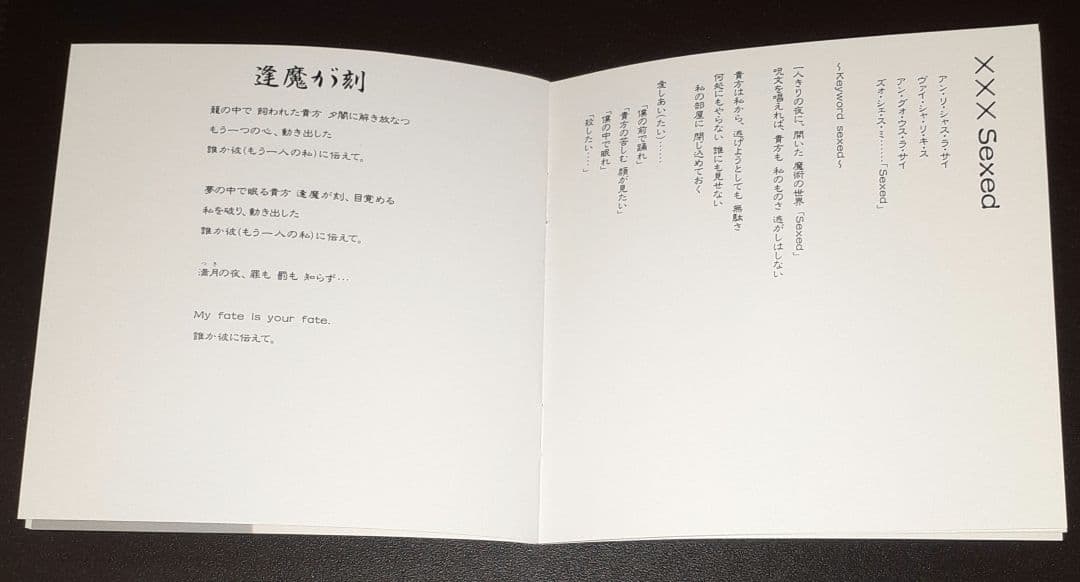 逢魔が刻
籠の中で 飼われた貴方 夕闇に解き放なつ
もう一つの心、動き出した
誰か彼(もう一人の私)に伝えて。
夢の中で眠る貴方 逢魔が刻、目覚める
私を破り、動き出した
誰か彼(もう一人の私)に伝えて。
つき
満月の夜、罪も 罰も 知らず…
My fate is your fate.
誰か彼に伝えて。
××× Sexed
アン・リ・シャス・ラ・サイ
ヴァイ・シャ・リ・キ・ス
アン・グォ・ウス・ラ・サイ
ズォ・シェ・ス・ミ………「Sexed」
～Keyword sexed～
一人きりの夜に、開いた 魔術の世界「Sexed」
呪文を唱えれば、貴方も 私のものさ 逃がしはしない
貴方は私から、逃げようとしても 無駄さ
何処にもやらない 誰にも見せない
私の部屋に 閉じ込めておく
愛しあい(たい)……
「僕の前で踊れ」
「貴方の苦しむ 顔が見たい」
「僕の中で眠れ」
「殺したい……」